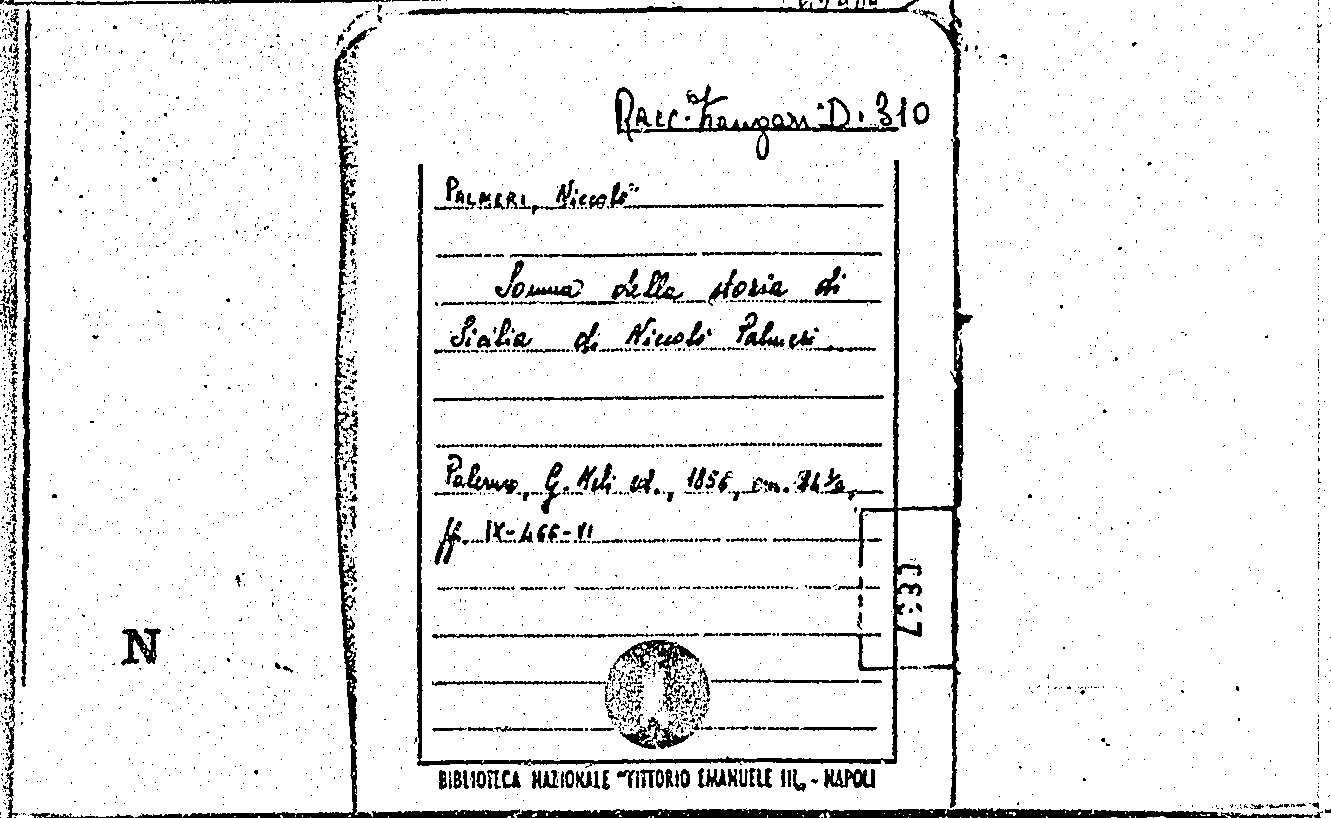 Racc. D. 310
PALMERI, Niccolò
Somma della storia di
Sicilia di Niccolò Palmeri
Palermo, G. Meli ed., 1856, cm.
ff. IX-466-VI
N
BIBLIOTECA NAZIONALE "VITTORIO EMANUELE III" - NAPOLI